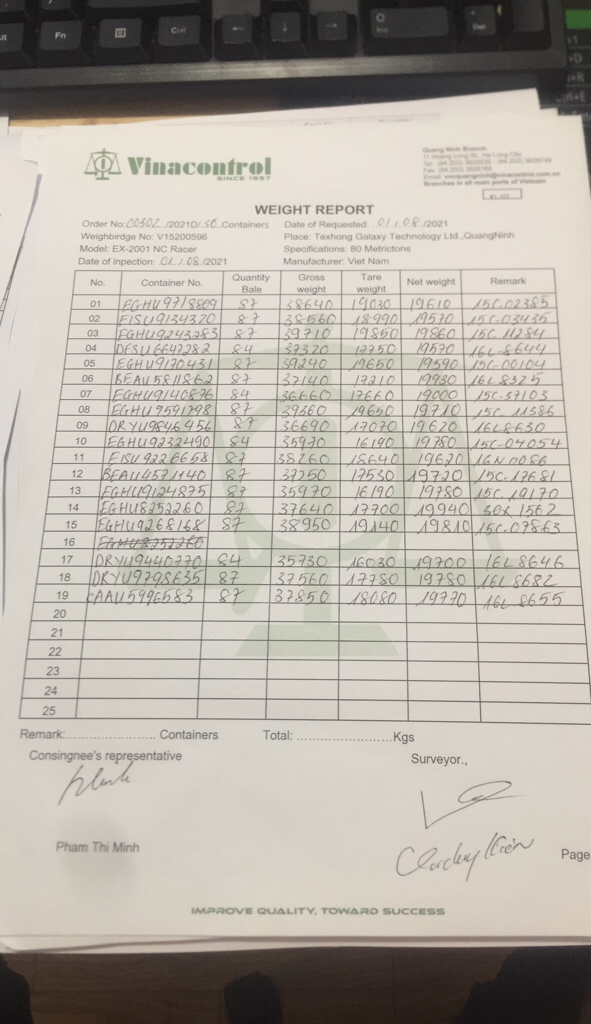 Fn
Ctrl
Vinacontrol
SINCE 1957
Quang Ninh Branch
Branches in all main ports of Vietnam
WEIGHT REPORT
Order No: 00302 /2021D/ 36 Containers Date of Requested: 01/08/2021
Weighbirdge No: V15200596 Place: Texhong Galaxy Technology Ltd.,QuangNinh
Model: EX-2001 NC Racer Specifications: 80 Metrictons
Date of inpection: 01/08/2021 Manufacturer: Viet Nam
No. Container No. Quantity Bale Gross weight Tare weight Net weight Remark
01 EGHU9718809 87 38640 19030 19610 15C.02385
02 EISU9134320 87 38560 18990 19570 15C.03435
03 EGHU9243283 87 39710 19850 19860 15C.11284
04 DFSU6647282 84 37320 17750 19570 16L-8644
05 EGHU9170431 87 39240 19650 19590 15C-00104
06 BEAU5811862 87 37140 17210 19930 16L8525
07 EGHU9140876 84 36660 17660 19000 15C-37103
08 EGHU9591798 87 39360 19650 19710 15C.11586
09 DRYU9846456 87 36690 17070 19620 16L8630
10 EGHU9232490 84 35970 16190 19780 15C-04054
11 EISU9226658 87 38260 18640 19620
12 BEAU4571140 87 37250 17530 19720 15C-17681
13 EGHU9124875 87 35970 16190 19780 15C.19170
14 EGHU8252260 87 37640 17700 19940
15 EGHU9268168 87 38950 19140 19810 15C.07863
16 EGHU8252260
17 DRYU9440770 84 35730 16030 19700 16L8646
18 DRYU9798635 87 37560 17780 19780 16L8682
19 CAAU5996583 87 37850 18080 19770 16L8655
20
21
22
23
24
25
Remark:........................ Containers Total:............................Kgs
Consingnee's representative Surveyor.,
Pham Thi Minh
Page
IMPROVE QUALITY, TOWARD SUCCESS